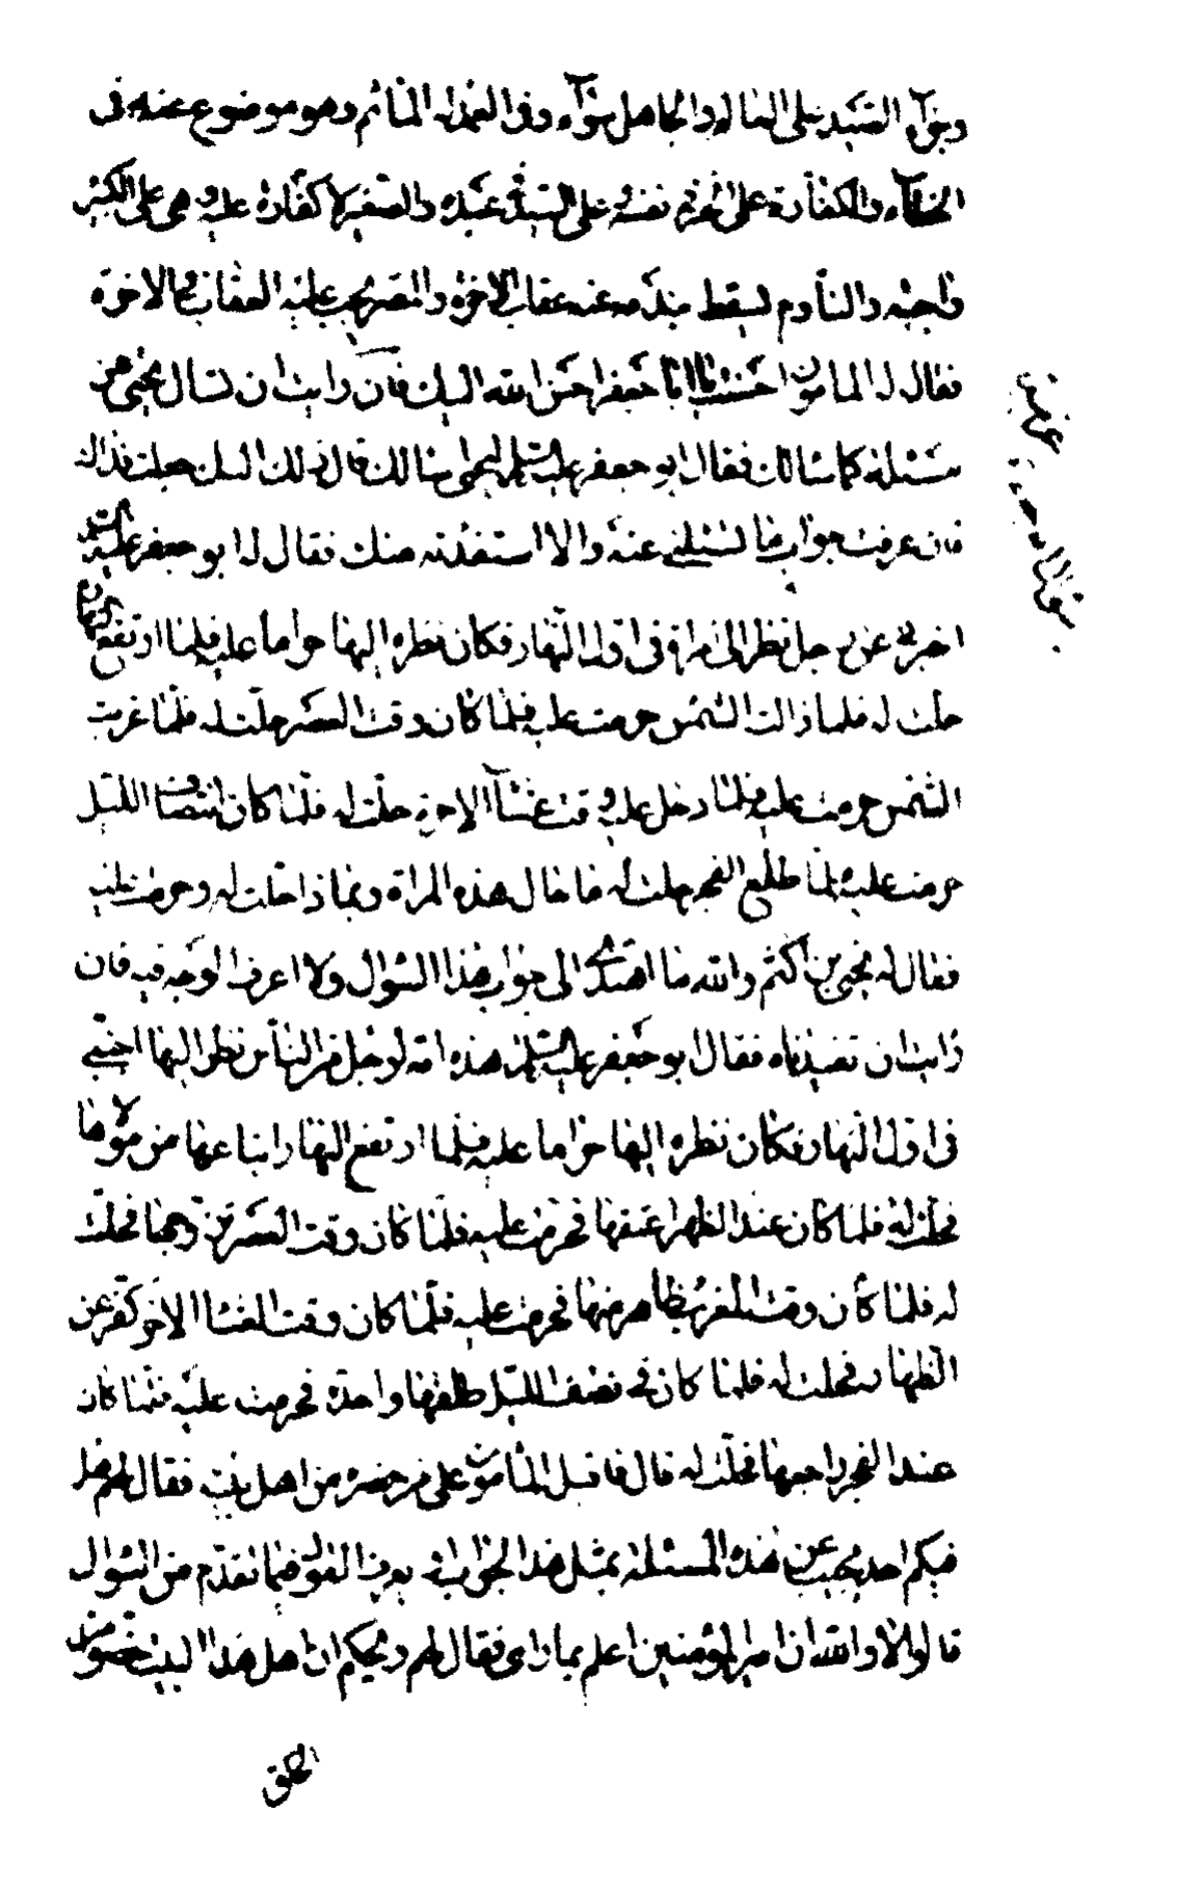 وجزآء الصّيد على العالم والجاهل سوآء وفى العمد له المأثم وهو موضوع عنه فى
الخطآء والكفّارة على الحر فى نفسه و على السيّد فى عبده والصّغير لا كفّارة عليه و هى على الكبير
واجبة والنّادم يسقط بندمه عنه عقاب الاخرة والمصر يجب عليه العقاب فى الاخرة
فقال له المامون احسنت يا ابا جعفر احسن الله اليك فان رايت ان تسال يحيى عن
مسئلة كما سالك فقال ابو جعفر عليه السّلم ليحيى اسالك قال ذلك اليك جعلت فداك
فان عرفت جواب ما تسئلنى عنه والا استفدته منك فقال له ابو جعفر عليه السّلم
اخبرنى عن رجل نظر الى امراة فى اوّل النّهار فكان نظره اليها حراما عليه فلما ارتفع النهار
حلت له فلما زالت الشّمس حرمت عليه فلمّا كان وقت العصر حلّت له فلمّا غربت
الشّمس حرمت عليه فلمّا دخل عليه وقت عشآء الاخرة حلّت له فلمّا كان انتصاف اللّيل
حرمت عليه فلمّا طلع الفجر حلت له ما حال هذه المراة وبما ذا حلّت له وحرمت عليه
فقال له يحيى بن أكثم والله ما اهتدى الى جواب هذا السّوال ولا اعرف الوجه فيه فان
رايت ان تفيدناه فقال ابو جعفر عليه السّلم هذه امة لرجل من النّاس نظر اليها اجنبى
فى اوّل النّهار فكان نظره اليها حراما عليه فلمّا ارتفع النّهار ابتاعها من مولاها
فحلّت له فلمّا كان عند الظهر اعتقها فحرمت عليه فلمّا كان وقت العصر تزوّجها فحلّت
له فلمّا كان وقت المغرب ظاهر منها فحرمت عليه فلمّا كان وقت العشاء الاخر كفّر عن
الظّهار فحلت له فلمّا كان فى نصف اللّيل طلّقها واحدة فحرمت عليه فلمّا كان
عند الفجر راجعها فحلّت له قال فاقبل المأمون على من حضره من اهل بيته فقال لهم هل
فيكم احد يجيب عن هذه المسئلة بمثل هذا الجواب او يعرف القول فيما تقدّم من السّوال
قالوا لا والله ان امير المؤمنين اعلم بما راى فقال لهم ويحكم ان اهل هذا البيت خصّوا من
الخلق